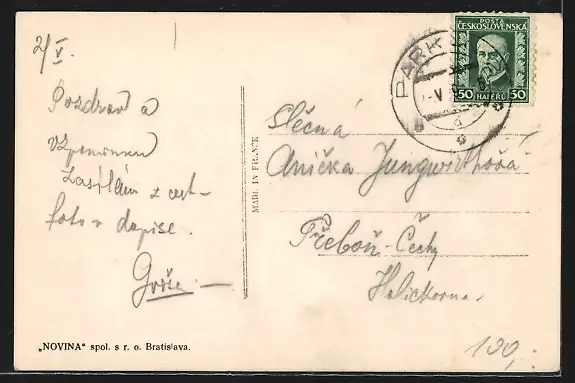 2/V.
Pozdrav a
vzpomínku
zasílám z cest-
foto v dopise.
„NOVINA“ spol. s r. o. Bratislava.
MADE IN FRANCE
POŠTA
ČESKOSLOVENSKÁ
50 HALÉŘŮ 50
PARK
Slečna
Anička Jungwirthová
Třeboň - Čechy
100,-